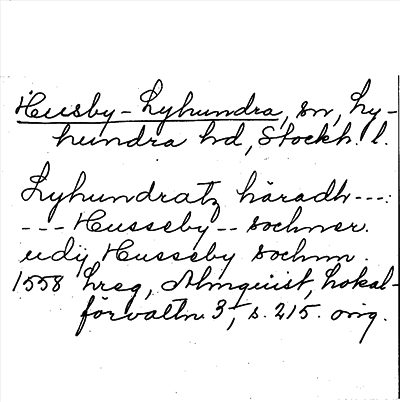 Husby-Lyhundra, sn, Ly-
hundra hd, Stockh. l.
Lyhundratz häradh ---:
--- Husseby -- sochner.
udij Husseby sochnn.
1558 hreg, Almquist, Lokal-
förvaltn 3, s. 215. orig.